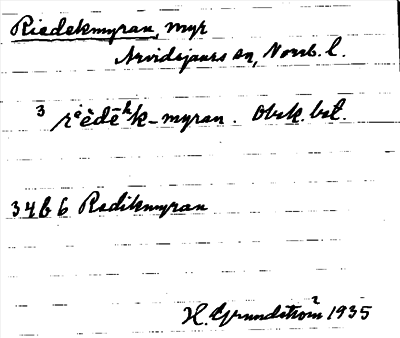 Riedekmyran, myr
Arvidsjaurs sn, Norrb. l.
3 riedēʰk-myran. Obek. bet.
34 B 6 Radikmyran
H. Grundström 1935